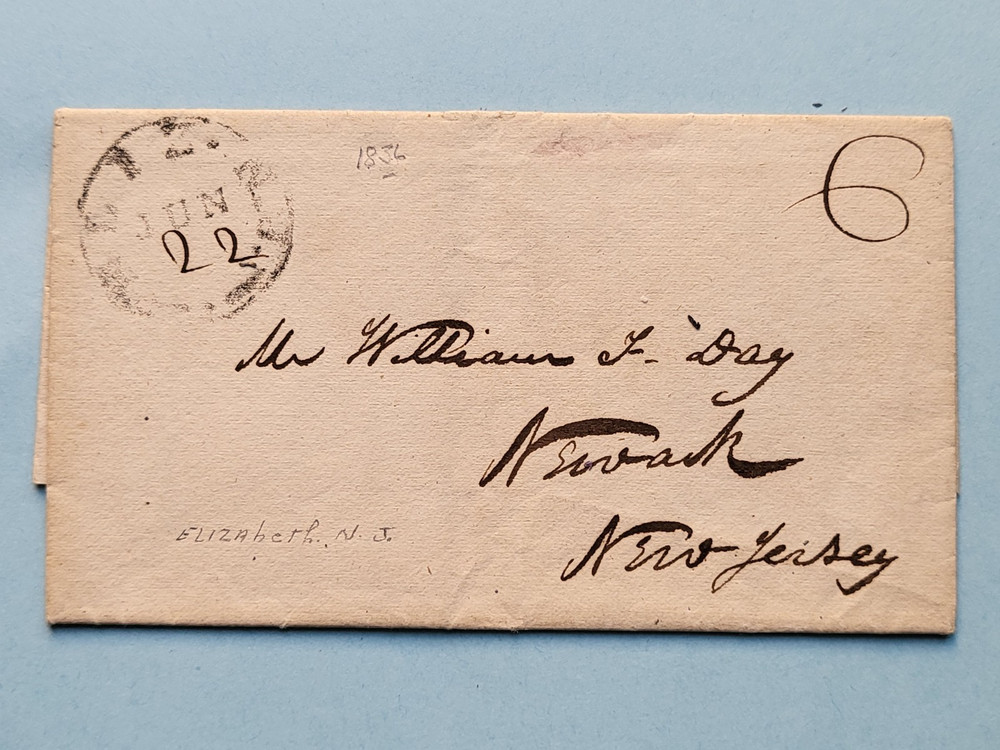 1836
6
JUN
22
Mr William F. Day
Newark
New Jersey
ELIZAbeth. N. J.